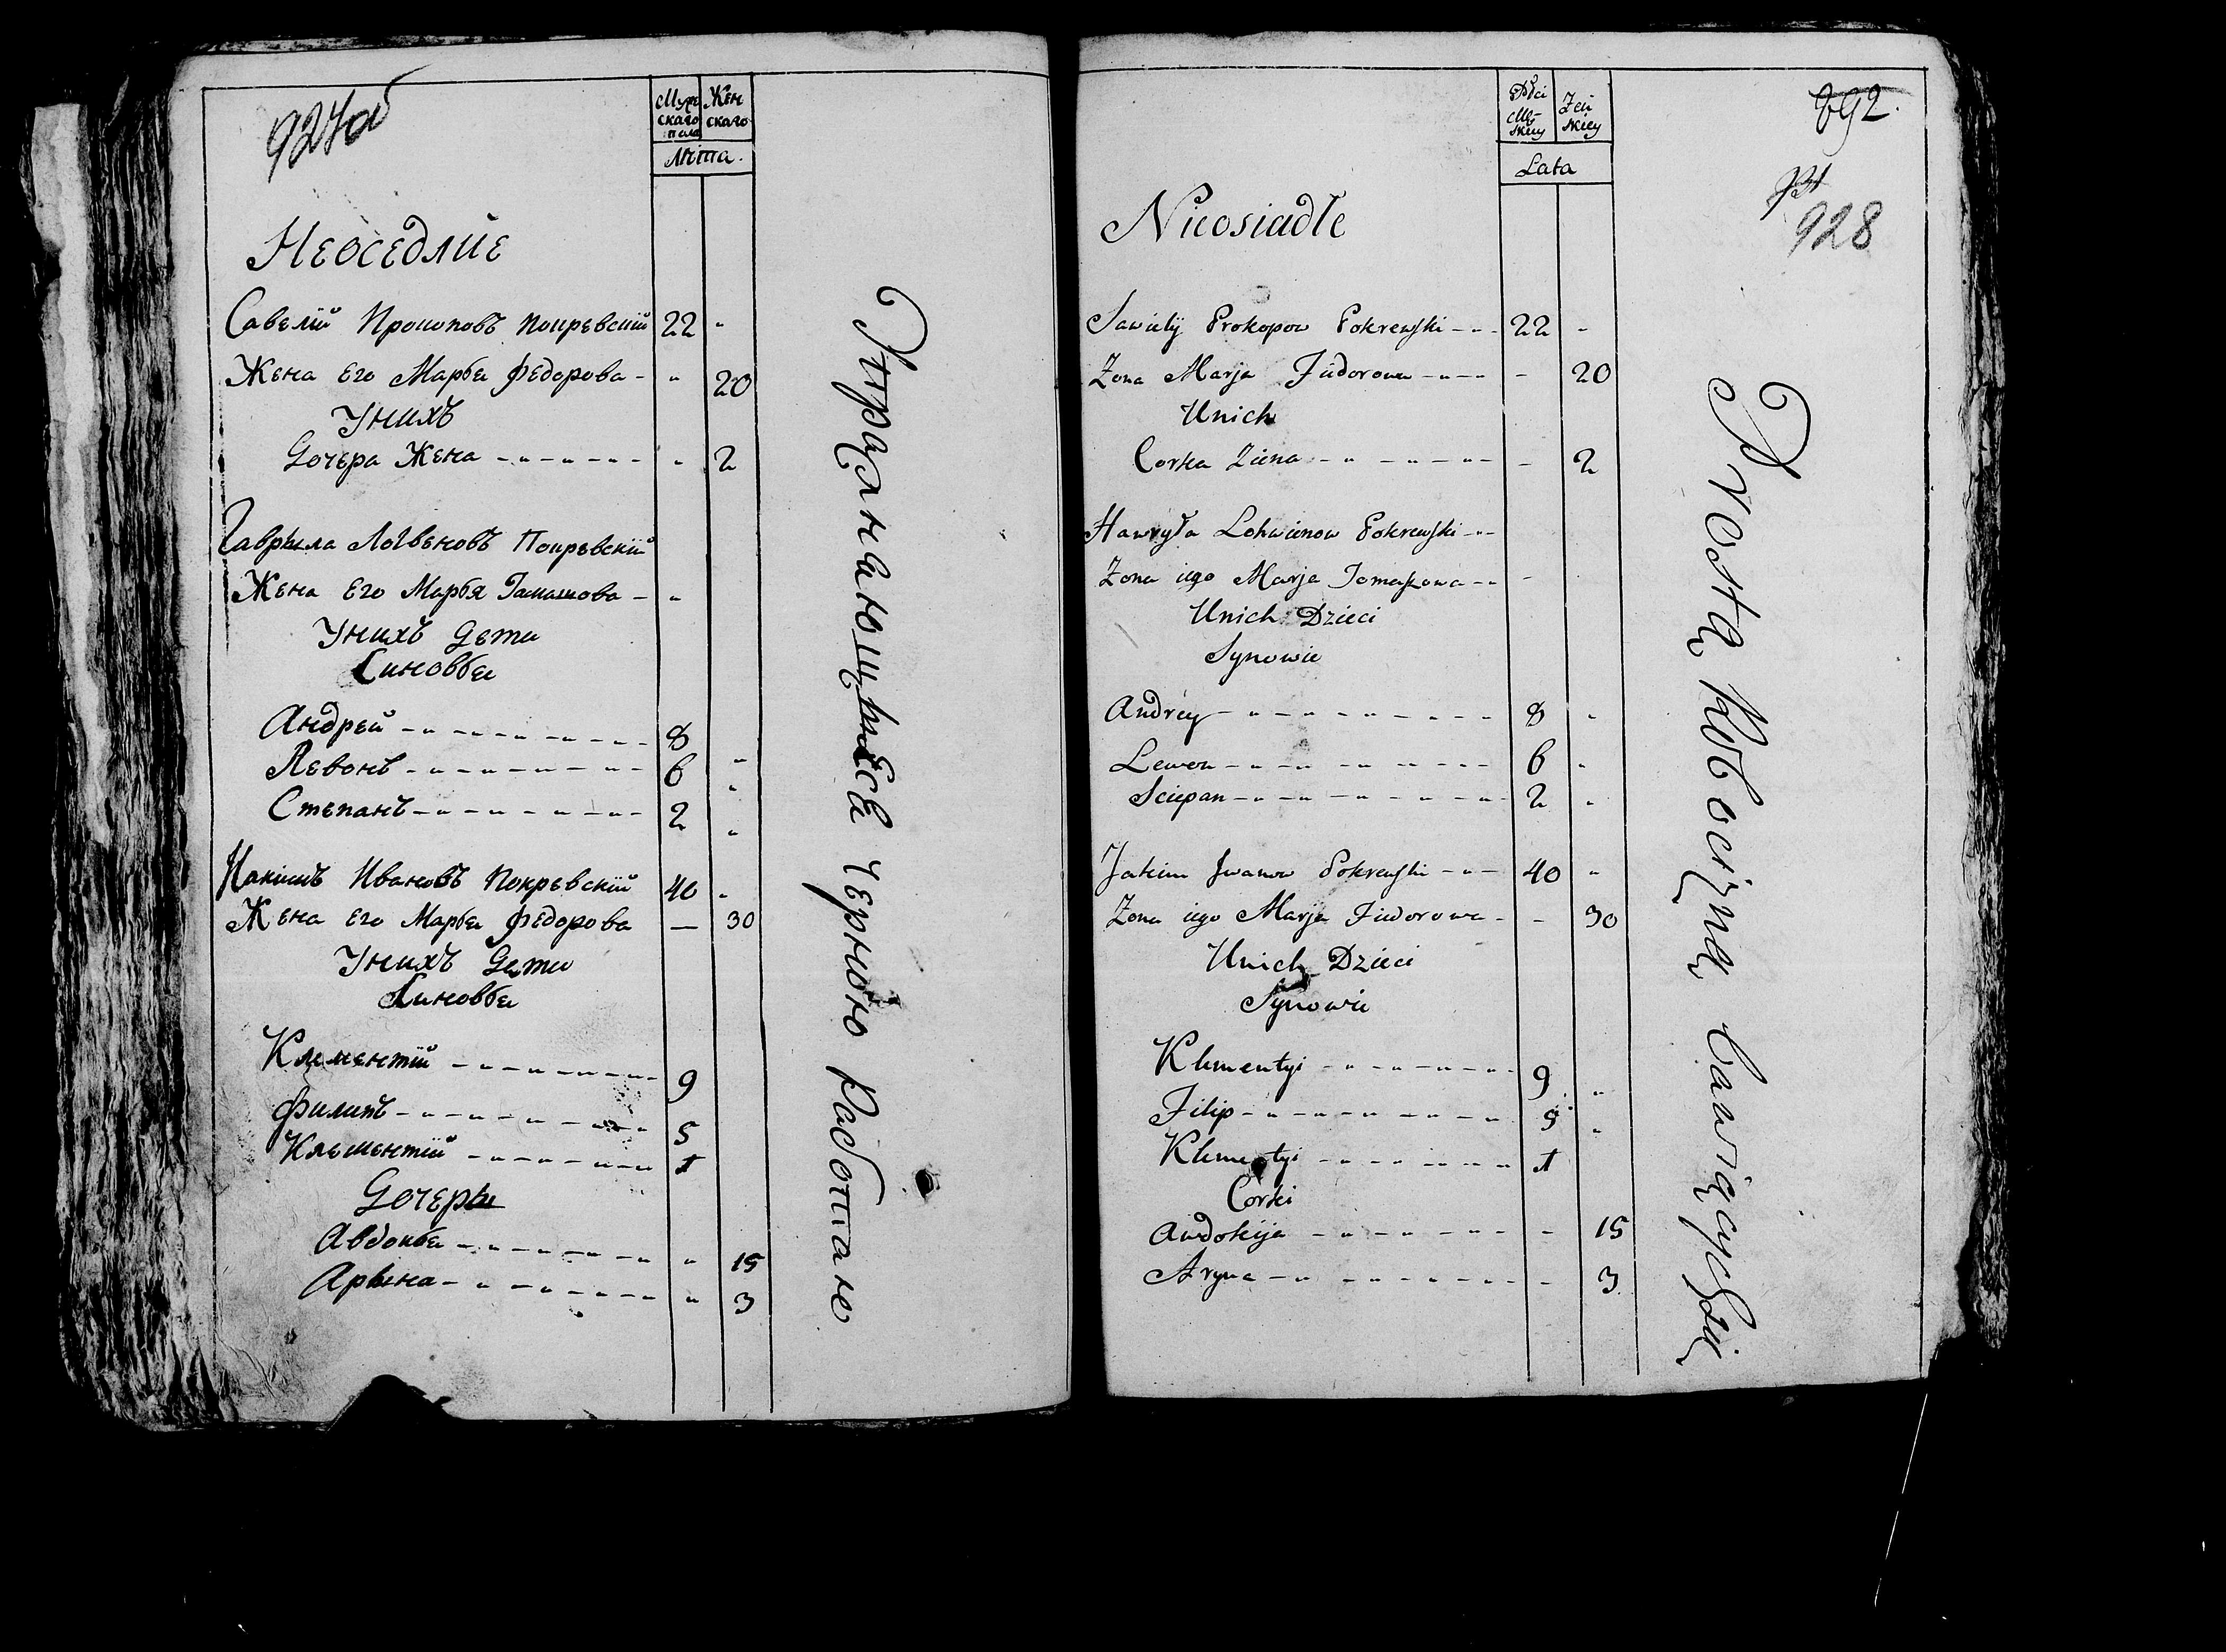 927об
Муж
скаго
пола
Жен
скаго
Лѣта.
Неоседлие
Савелій Прокоповъ Покревскій 22 "
Жена Его Марья Федорова - " 20
Унихъ
Дочера Жена - " - " - " 2
Гаврыла Логвеновъ Покревскій
Жена Его Марья Тамашова - "
Унихъ Дети
Синовья
Андрей - " - " - " - 8 "
Левонъ - " - " - " - 6 "
Степанъ - " - " - " - 2 "
Иакимъ Ивановъ Покревскій 40 "
Жена Его Марья Федорова — 30
Унихъ Дети
Синовья
Клементій - " - " - " - 9
Филипъ - " - " - " - 5
Клементій - " - " - " - 1
Дочеры
Авдокья - " - " - " - " 15
Арына - " - " - " - " 3
Упражнающыеся черною Работаю
Płci
Mę-
skiey
Żeń
skiey
Lata
892.
928
Nieosiadłe
Sawiely Prokopow Pokrewski - " - 22 "
Zona Marja Fiedorowa - " - - 20
Unich
Corka Ziena - " - " - " - - 2
Hawryła Lohwienow Pokrewski - " -
Zona iego Marja Tomaszowa - " -
Unich Dzieci
Synowie
Andrey - " - " - " - 8 "
Lewon - " - " - " - 6 "
Sciepan - " - " - " - 2 "
Jakim Iwanow Pokrewski - " - 40 "
Zona iego Marja Fiedorowa - - 30
Unich Dzieci
Synowie
Klementyi - " - " - " - 9 "
Filip - " - " - " - 5 "
Klementyi - " - " - " - 1
Corki
Awdokija - " - " - " - - 15
Aryna - " - " - " - - 3
Prostą Robocizną Bawiącychsię